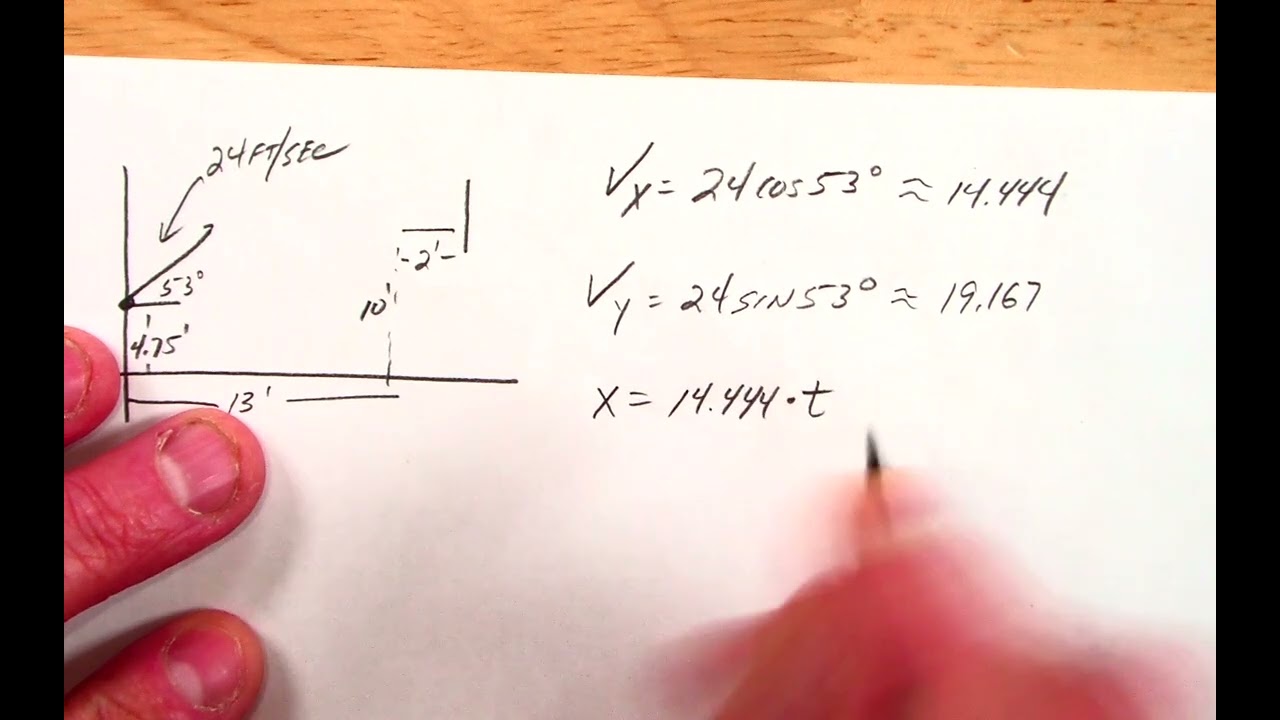 24 FT/SEC
53°
4.75'
13'
10'
2'
Vx = 24 cos 53° ≈ 14.444
Vy = 24 SIN 53° ≈ 19.167
x = 14.444 · t